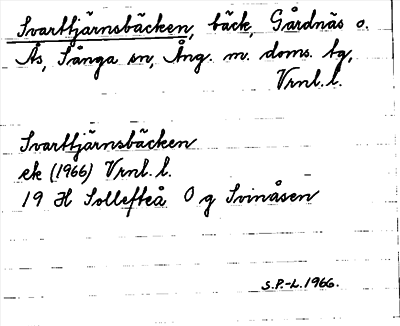 Svarttjärnsbäcken, bäck, Gårdnäs o.
Ås, Sånga sn, Ång. m. doms. bg,
Vrnl. l.
Svarttjärnsbäcken
ek (1966) Vrnl. l.
19 H Sollefteå 0 g Svinåsen
S.P-L. 1966.